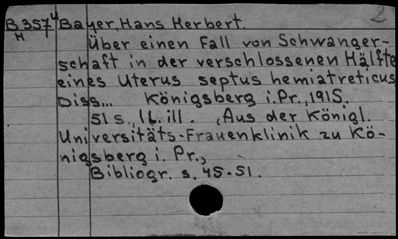 2
B 357⁴ Bayer, Hans Herbert.
H
Über einen Fall von Schwanger-
schaft in der verschlossenen Hälfte
eines Uterus septus hemiatreticus
Diss... Königsberg i. Pr., 1915.
51 s., 1 b. ill. (Aus der Königl.
Universitäts-Frauenklinik zu Kö-
nigsberg i. Pr.,
Bibliogr. s. 45-51.